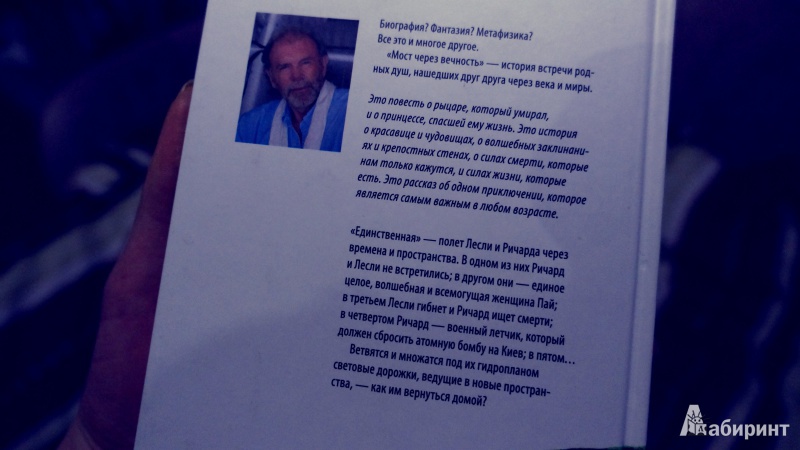 Биография? Фантазия? Метафизика?
Все это и многое другое.
«Мост через вечность» — история встречи род-
ных душ, нашедших друг друга через века и миры.
Это повесть о рыцаре, который умирал,
и о принцессе, спасшей ему жизнь. Это история
о красавице и чудовищах, о волшебных заклинани-
ях и крепостных стенах, о силах смерти, которые
нам только кажутся, и силах жизни, которые
есть. Это рассказ об одном приключении, которое
является самым важным в любом возрасте.
«Единственная» — полет Лесли и Ричарда через
времена и пространства. В одном из них Ричард
и Лесли не встретились; в другом они — единое
целое, волшебная и всемогущая женщина Пай;
в третьем Лесли гибнет и Ричард ищет смерти;
в четвертом Ричард — военный летчик, который
должен сбросить атомную бомбу на Киев; в пятом...
Ветвятся и множатся под их гидропланом
световые дорожки, ведущие в новые простран-
ства, — как им вернуться домой?
Лабиринт